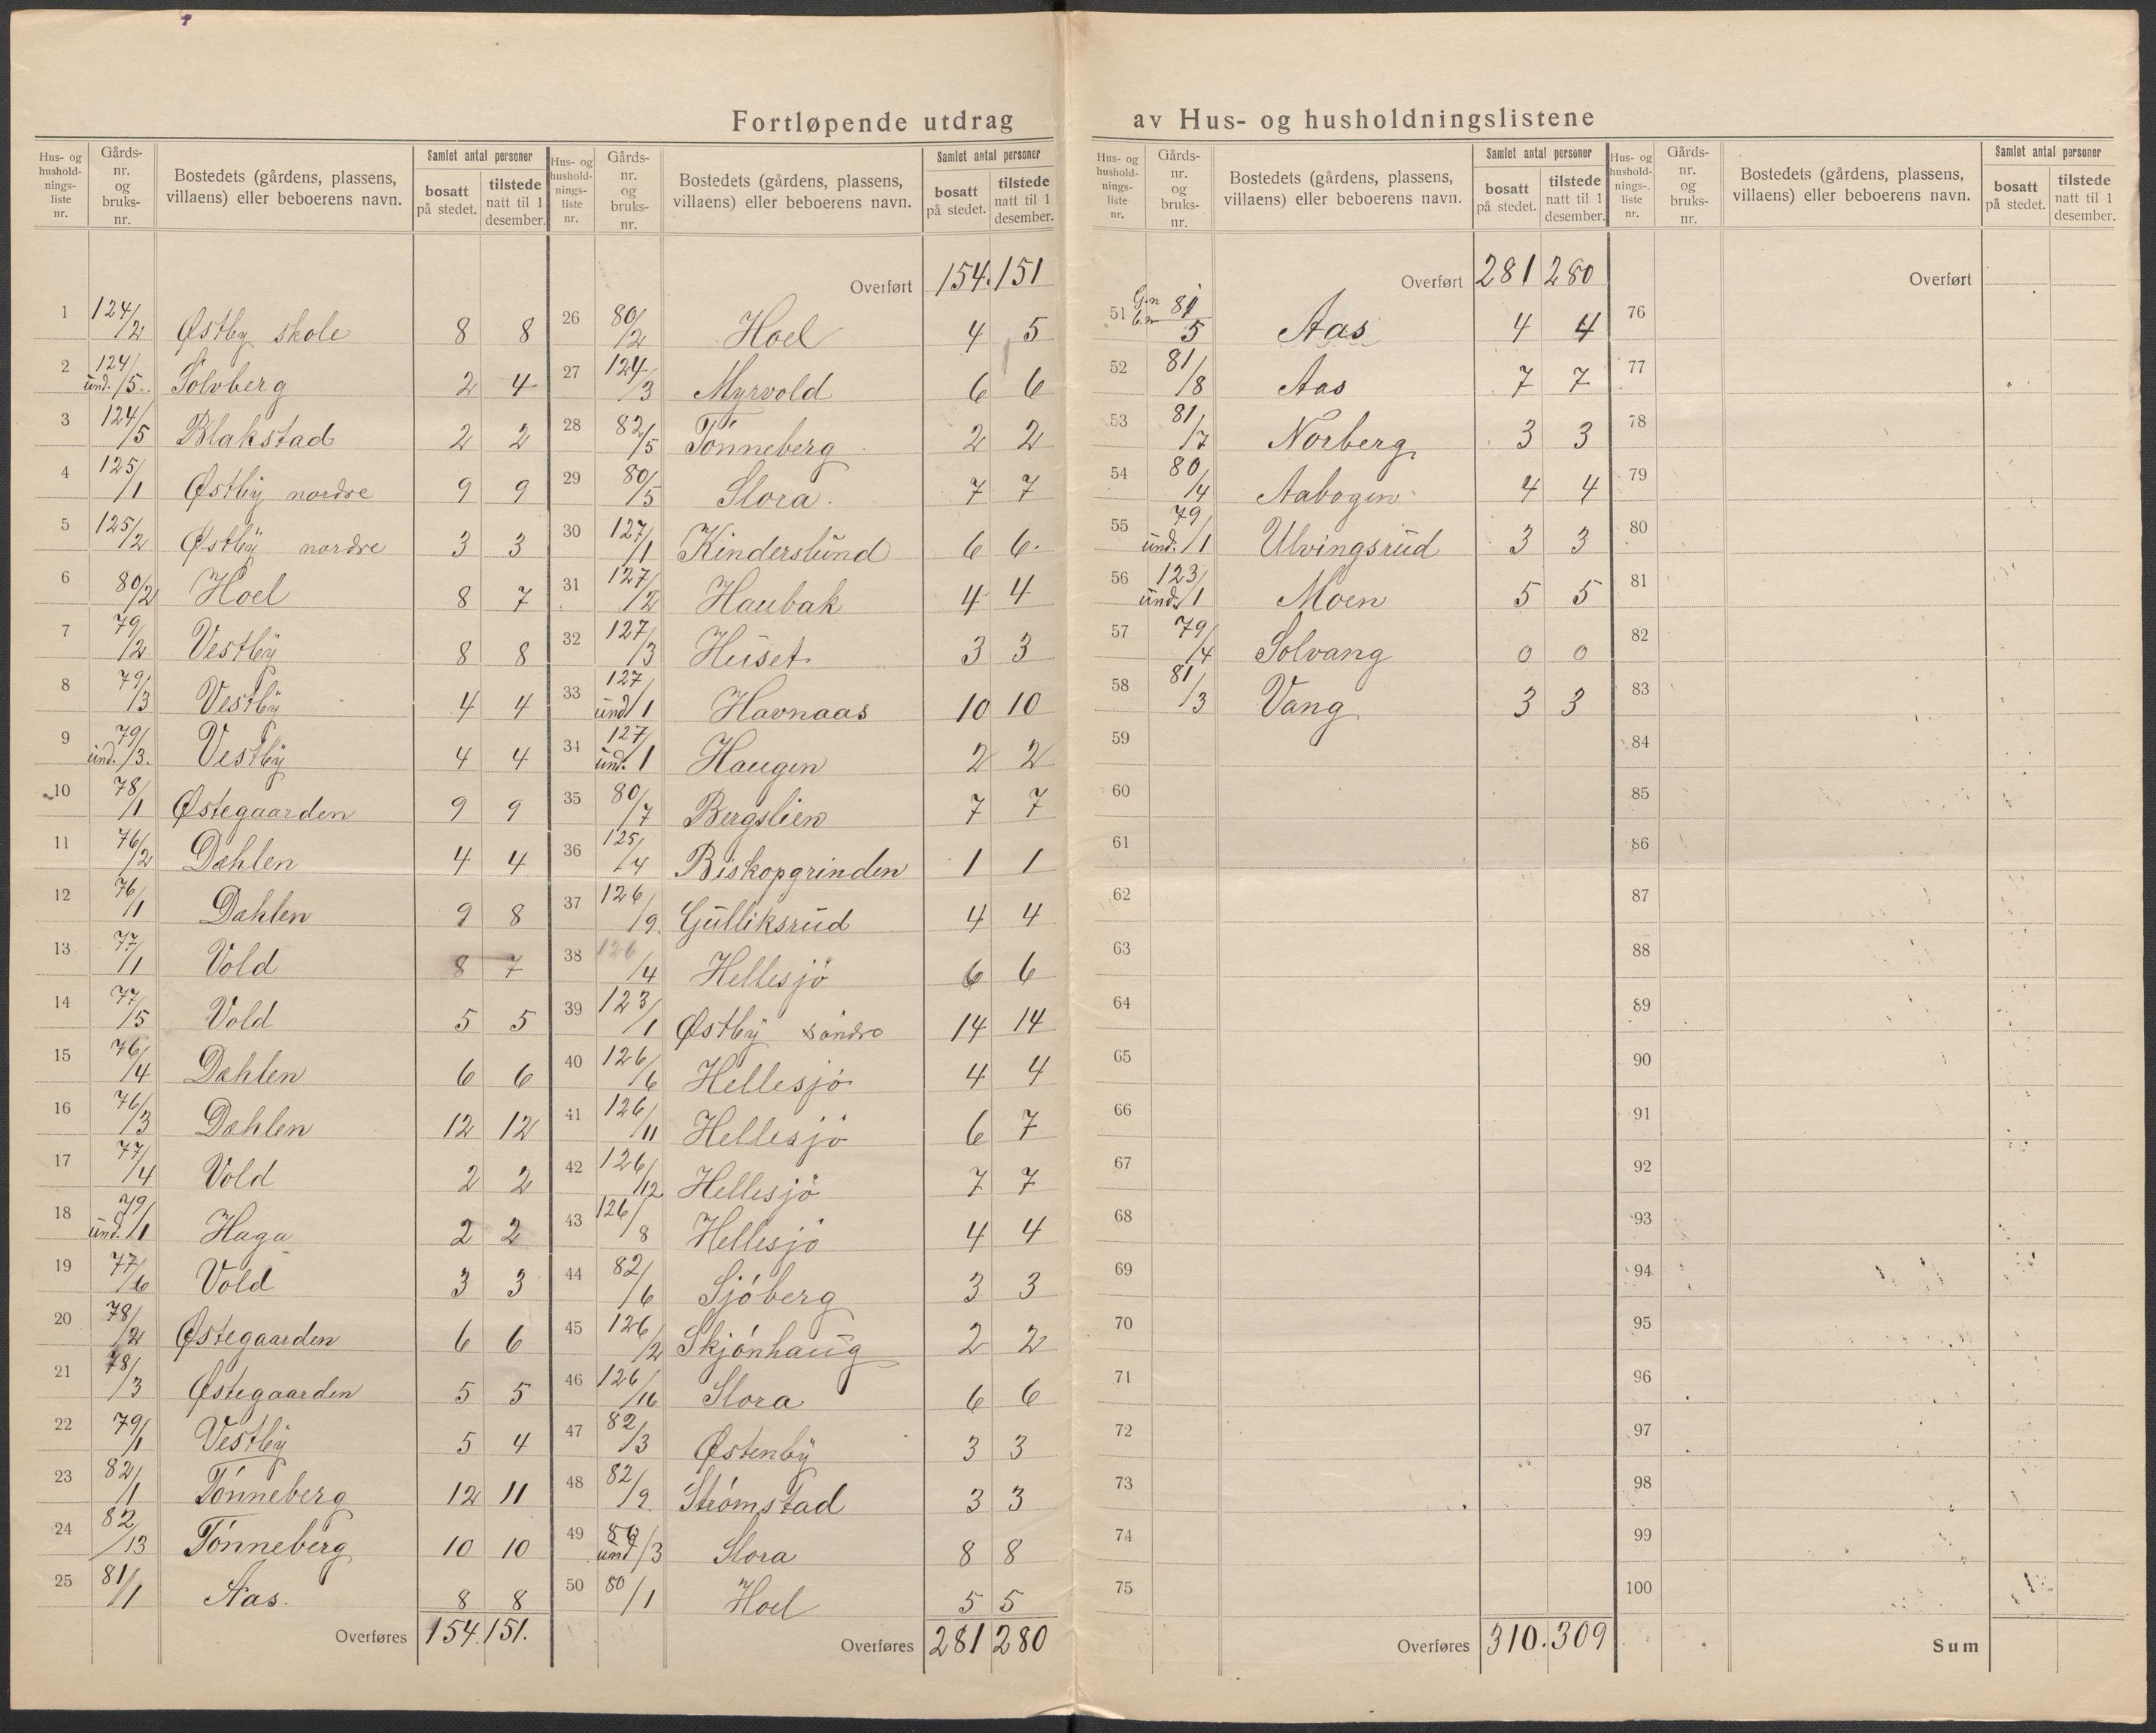 Fortløpende utdrag av Hus- og husholdningslistene
Hus- og husholdnings- liste nr. Gårds- nr. og bruks- nr. Bostedets (gårdens, plassens, villaens) eller beboerens navn. Samlet antal personer bosatt på stedet. tilstede natt til 1 desember.
1 124/2 Østby skole 8 8
2 124/ und. 5 Solvberg 2 4
3 124/5 Blakstad 2 2
4 125/1 Østby nordre 9 9
5 125/2 Østby nordre 3 3
6 80/2 Hoel 8 7
7 79/2 Vestby 8 8
8 79/3 Vestby 4 4
9 79/ und. 3. Vestby 4 4
10 78/1 Østegaarden 9 9
11 76/2 Dahlen 4 4
12 76/1 Dahlen 9 8
13 77/1 Vold 8 7
14 77/5 Vold 5 5
15 76/4 Dahlen 6 6
16 76/3 Dahlen 12 12
17 77/4 Vold 2 2
18 79/ und. 1 Haga 2 2
19 77/6 Vold 3 3
20 78/2 Østegaarden 6 6
21 78/3 Østegaarden 5 5
22 79/1 Vestby 5 4
23 82/1 Tönneberg 12 11
24 82/13 Tönneberg 10 10
25 81/1 Aas. 8 8
Overføres 154. 151.
Hus- og husholdnings- liste nr. Gårds- nr. og bruks- nr. Bostedets (gårdens, plassens, villaens) eller beboerens navn. Samlet antal personer bosatt på stedet. tilstede natt til 1 desember.
Overført 154. 151
26 80/2 Hoel 4 5
27 124/3 Myrvold 6 6
28 82/5 Tönneberg 2 2
29 80/5 Slora. 7 7
30 127/1 Kinderslund 6 6.
31 127/2 Haubak 4 4
32 127/3 Huset 3 3
33 127/ und 1 Havnaas 10 10
34 127/ und. 1 Haugen 2 2
35 80/7 Bergslien 7 7
36 125/4 Biskopgrinden 1 1
37 126/9. Gulliksrud 4 4
38 126/4 Hellesjö 6 6
39 123/1 Østby söndre 14 14
40 126/6 Hellesjö 4 4
41 126/11 Hellesjö 6 7
42 126/12 Hellesjö 7 7
43 126/8 Hellesjö 4 4
44 82/6 Sjöberg 3 3
45 126/2 Skjönhaug 2 2
46 126/16 Slora 6 6
47 82/3 Østenby 3 3
48 82/9. Strömstad 3 3
49 und /3 Slora 8 8
50 80/1 Hoel 5 5
Overføres 281 280
Hus- og husholdnings- liste nr. Gårds- nr. og bruks- nr. Bostedets (gårdens, plassens, villaens) eller beboerens navn. Samlet antal personer bosatt på stedet. tilstede natt til 1 desember.
Overført 281 280
51 G.n 81 b.n 5 Aas 4 4
52 81/8 Aas 7 7
53 81/7 Norberg 3 3
54 80/4 Aabogen 4 4
55 79/ und. 1 Ulvingsrud 3 3
56 123/ und. 1 Moen 5 5
57 79/4 Solvang 0 0
58 81/3 Vang 3 3
59
60
61
62
63
64
65
66
67
68
69
70
71
72
73
74
75
Overføres 310. 309
Hus- og husholdnings- liste nr. Gårds- nr. og bruks- nr. Bostedets (gårdens, plassens, villaens) eller beboerens navn. Samlet antal personer bosatt på stedet. tilstede natt til 1 desember.
Overført
76
77
78
79
80
81
82
83
84
85
86
87
88
89
90
91
92
93
94
95
96
97
98
99
100
Sum